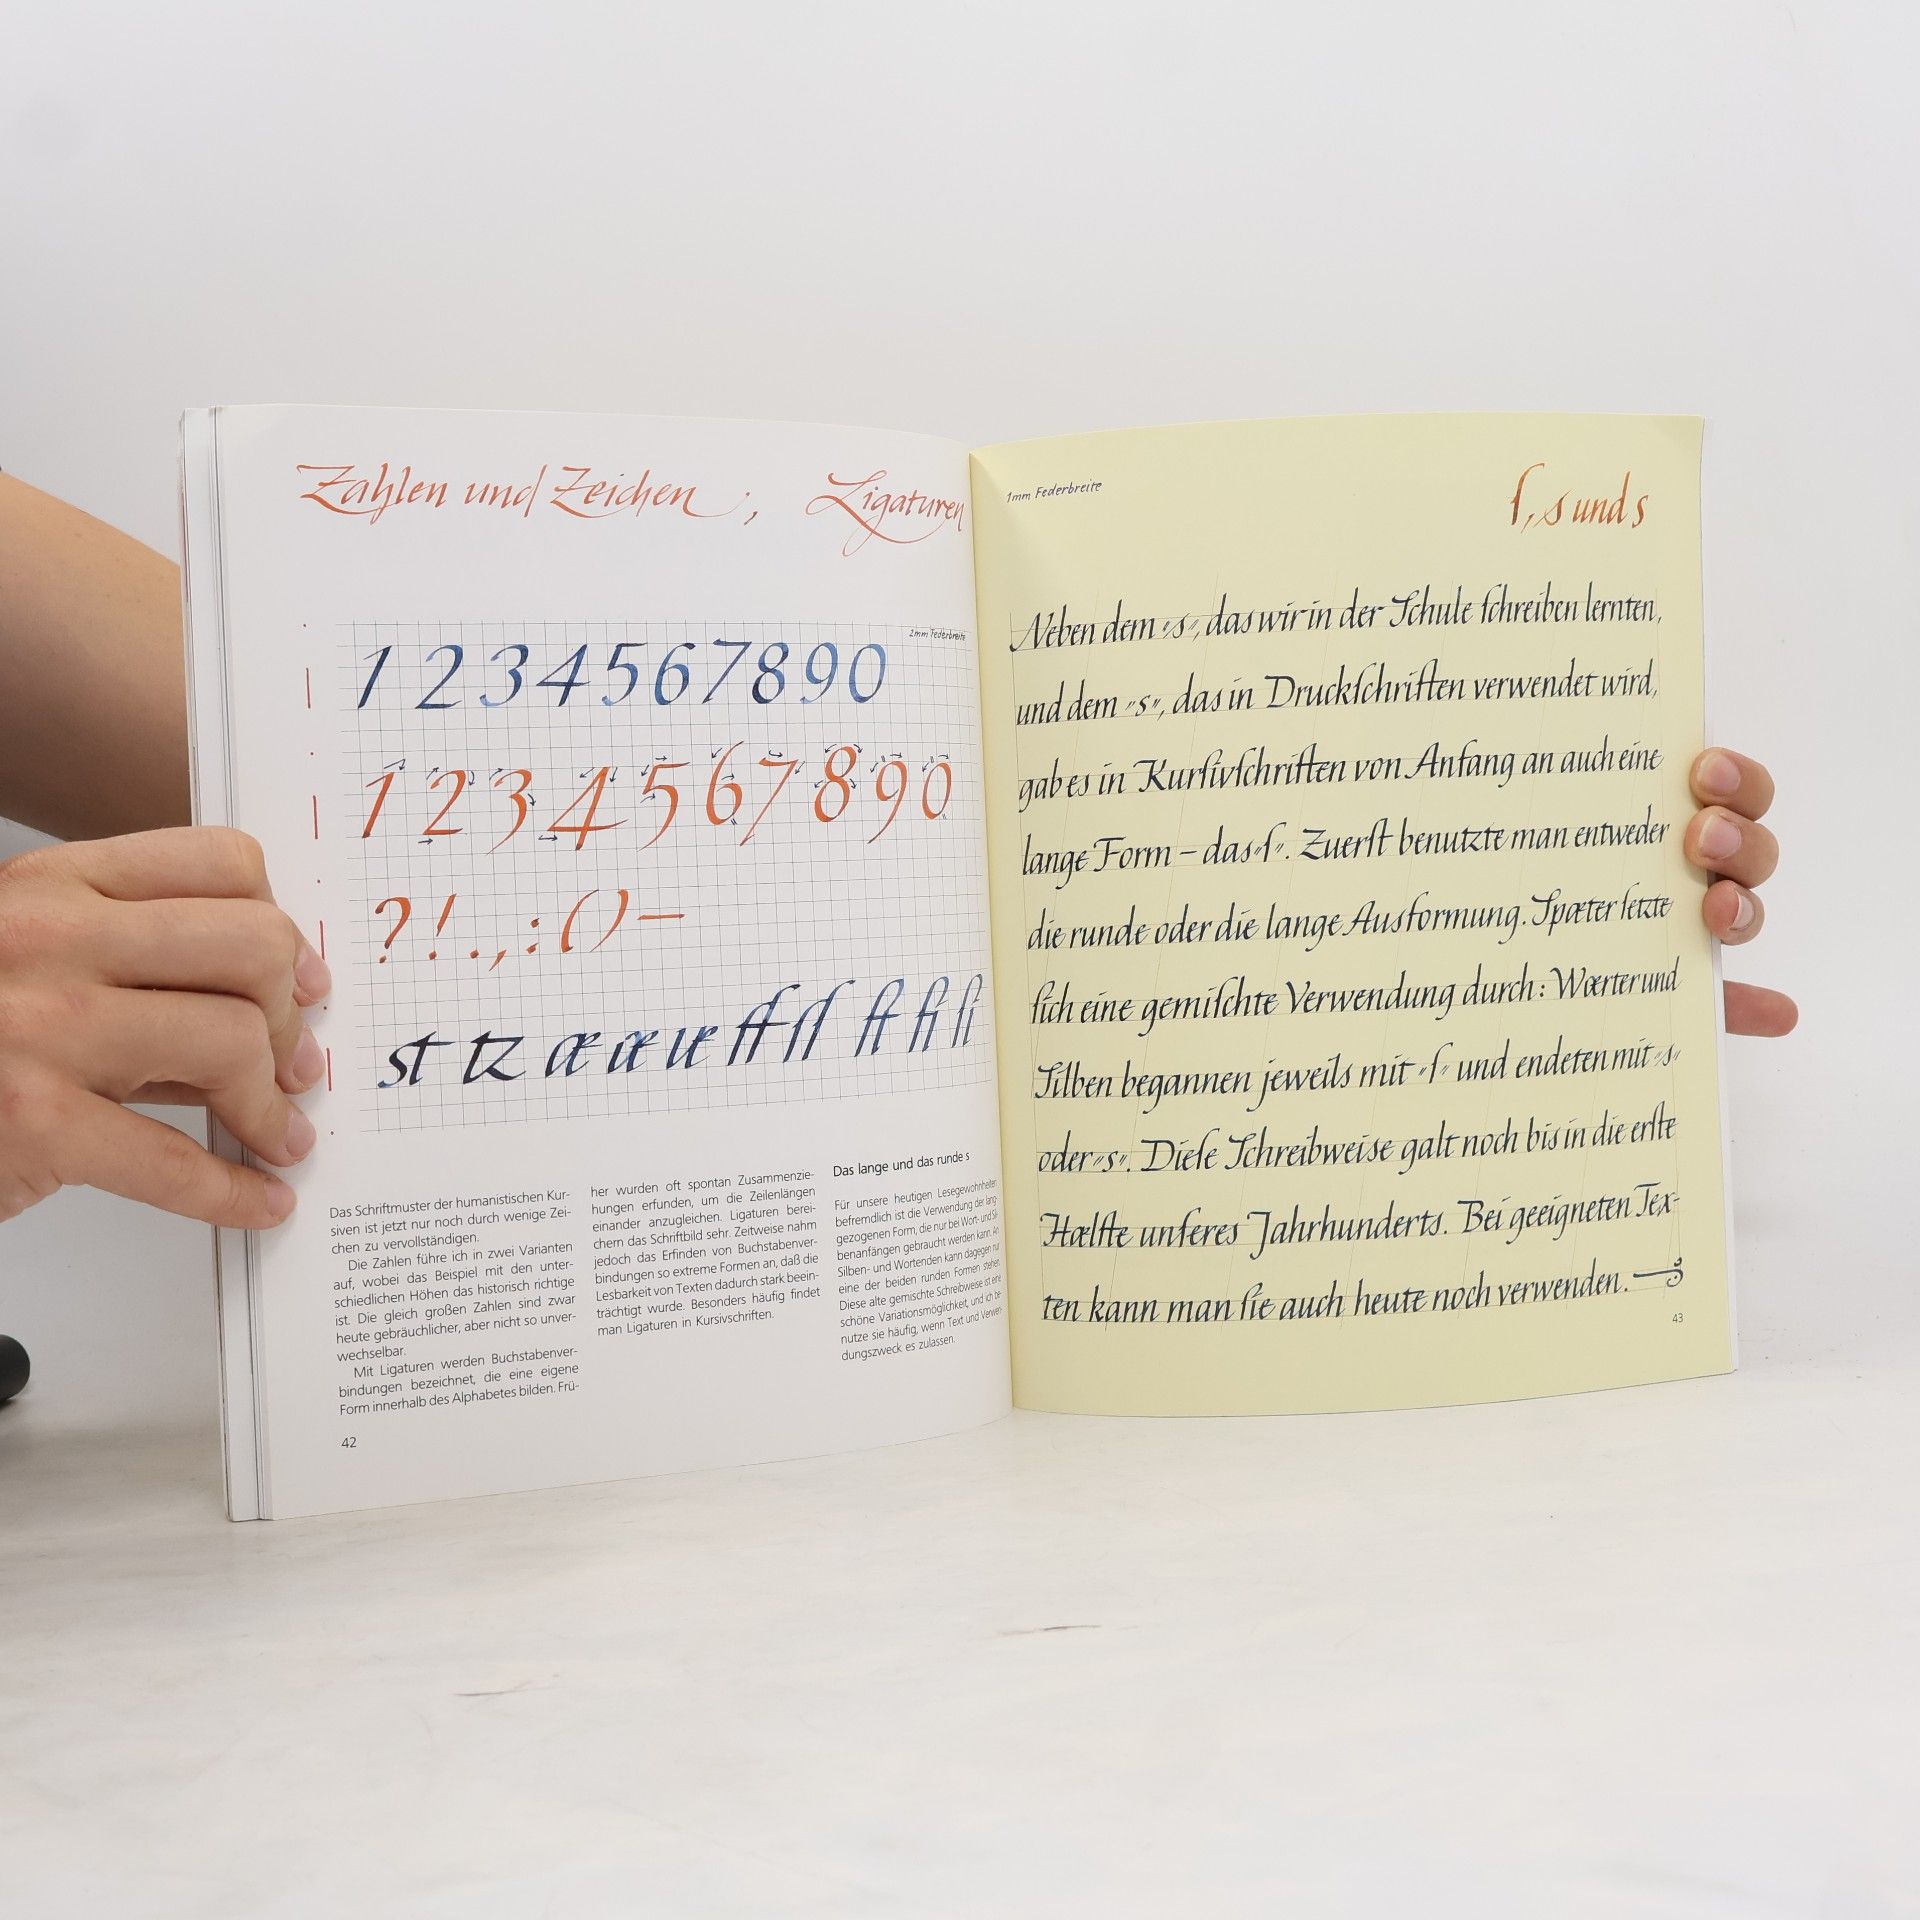 Zahlen und Zeichen, Ligaturen
2mm Federbreite
1 2 3 4 5 6 7 8 9 0
1 2 3 4 5 6 7 8 9 0
? ! . , : ( ) –
st tz œ æ ue ff ſſ ft fi ſi
Das Schriftmuster der humanistischen Kur-
siven ist jetzt nur noch durch wenige Zei-
chen zu vervollständigen.
Die Zahlen führe ich in zwei Varianten
auf, wobei das Beispiel mit den unter-
schiedlichen Höhen das historisch richtige
ist. Die gleich großen Zahlen sind zwar
heute gebräuchlicher, aber nicht so unver-
wechselbar.
Mit Ligaturen werden Buchstabenver-
bindungen bezeichnet, die eine eigene
Form innerhalb des Alphabetes bilden. Frü-
her wurden oft spontan Zusammenzie-
hungen erfunden, um die Zeilenlängen
einander anzugleichen. Ligaturen berei-
chern das Schriftbild sehr. Zeitweise nahm
jedoch das Erfinden von Buchstabenver-
bindungen so extreme Formen an, daß die
Lesbarkeit von Texten dadurch stark beein-
trächtigt wurde. Besonders häufig findet
man Ligaturen in Kursivschriften.
Das lange und das runde s
Für unsere heutigen Lesegewohnheiten
befremdlich ist die Verwendung der lang-
gezogenen Form, die nur bei Wort- und Sil-
benanfängen gebraucht werden kann. An
Silben- und Wortenden kann dagegen nur
eine der beiden runden Formen stehen.
Diese alte gemischte Schreibweise ist eine
schöne Variationsmöglichkeit, und ich be-
nutze sie häufig, wenn Text und Verwen-
dungszweck es zulassen.
42
1mm Federbreite
ſ, s und s
Neben dem »s«, das wir in der Schule ſchreiben lernten,
und dem »s«, das in Druckſchriften verwendet wird,
gab es in Kurſivſchriften von Anfang an auch eine
lange Form – das »ſ«. Zuerſt benutzte man entweder
die runde oder die lange Ausformung. Spæter ſetzte
ſich eine gemiſchte Verwendung durch: Wœrter und
Silben begannen jeweils mit »ſ« und endeten mit »s«
oder »s«. Dieſe Schreibweise galt noch bis in die erſte
Hælfte unſeres Jahrhunderts. Bei geeigneten Tex-
ten kann man ſie auch heute noch verwenden.
43